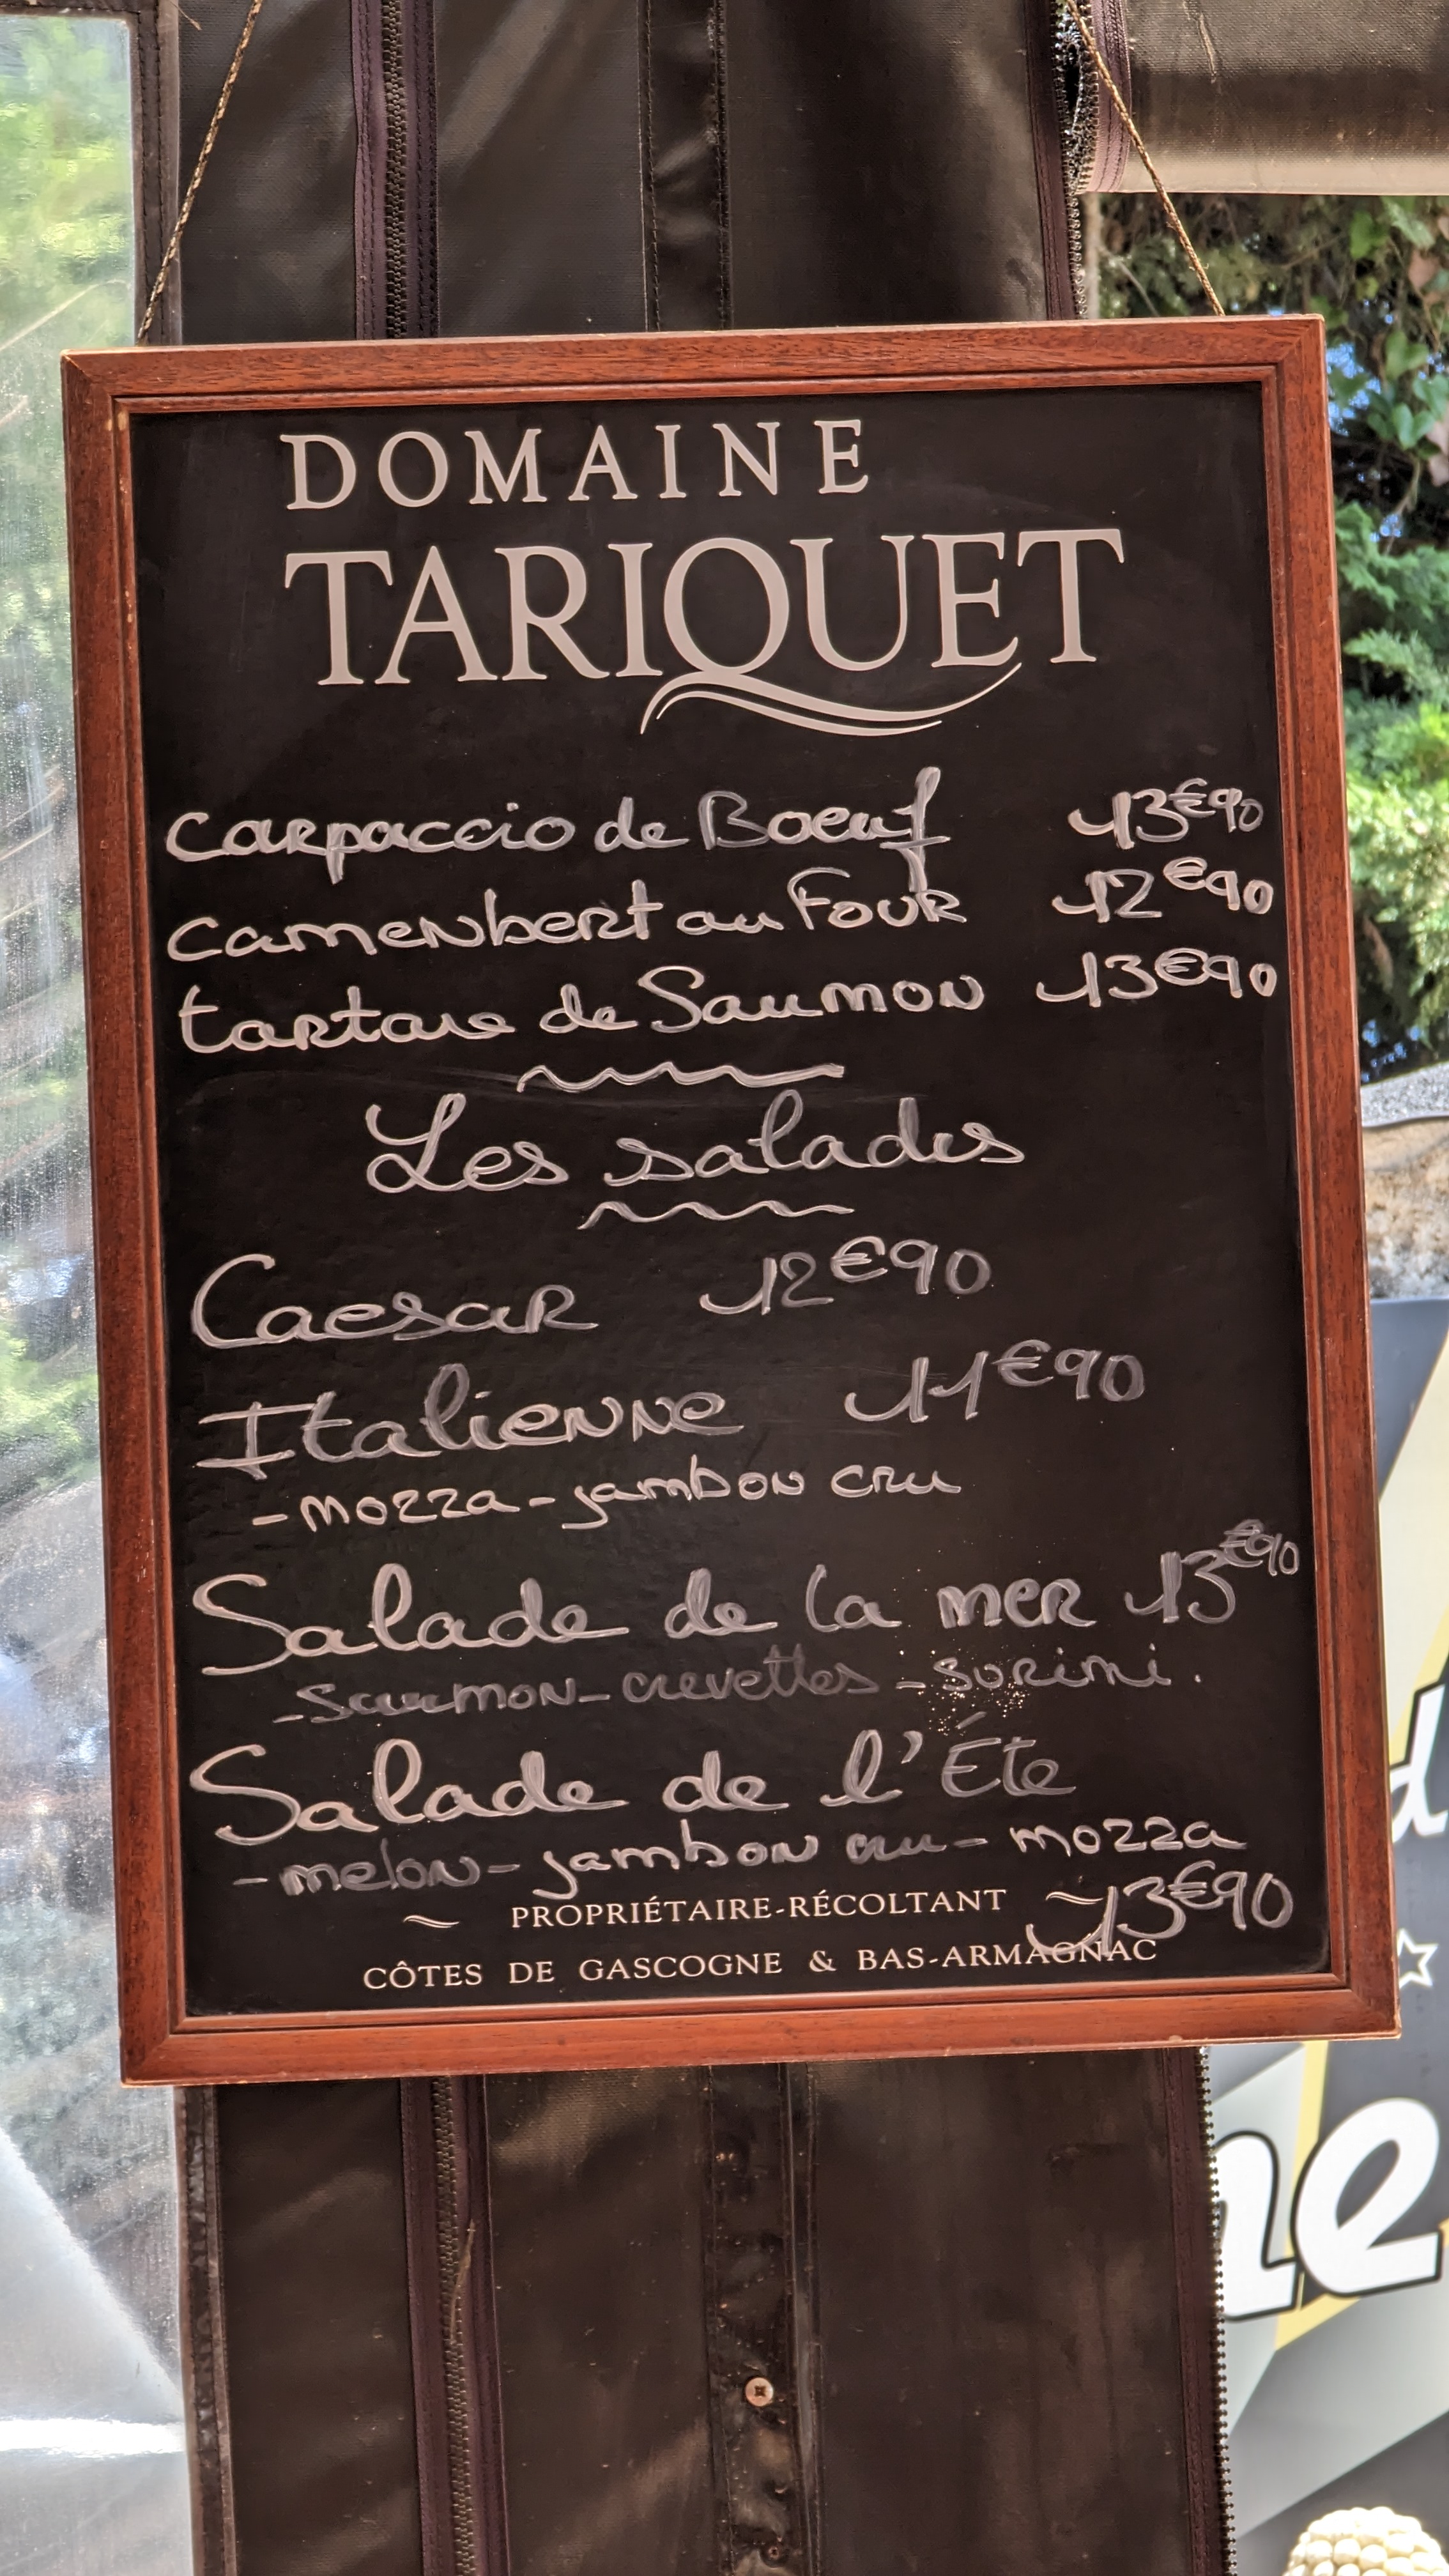 DOMAINE
TARIQUET
Carpaccio de Boeuf 13€90
Camenbert au Four 12€90
tartare de Saumon 13€90
Les salades
Caesar 12€90
Italienne 11€90
- mozza - jambon cru
Salade de la mer 13€90
- Saumon - crevettes - surimi.
Salade de l'Éte
- melon - jambon cru - mozza
13€90
~ PROPRIÉTAIRE-RÉCOLTANT ~
CÔTES DE GASCOGNE & BAS-ARMAGNAC
d
ne